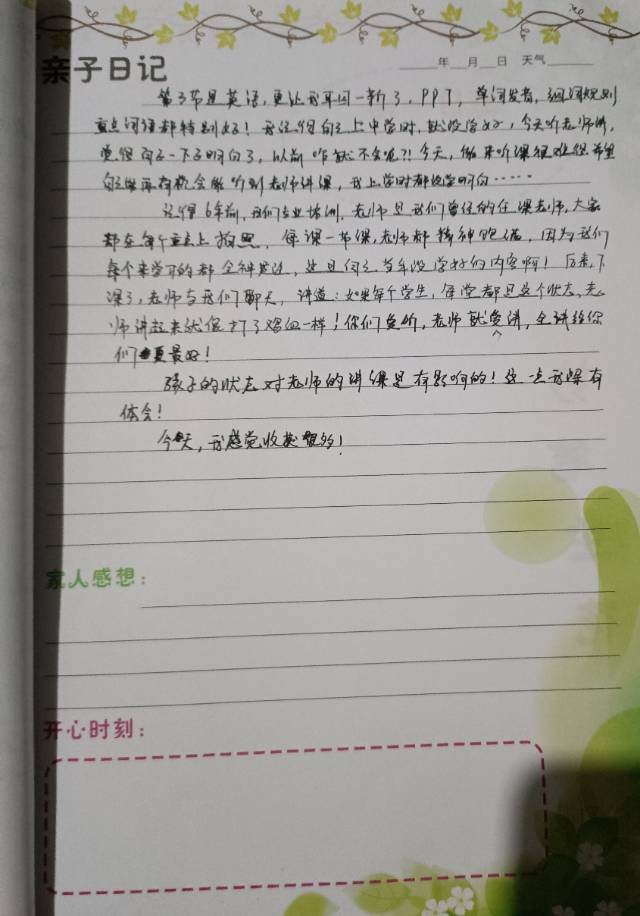 亲子日记
年 月 日 天气
第3节是英语,更让我耳目一新了,PPT,单词发音,词规则
重点词语都特别好!我记得自己上中学时,就没学好,今天听老师讲,
觉得自己一下子明白了,以前咋就不会呢?!今天,听课很难得希望
自己再有机会能听到老师讲课,我上学时都没学明白……
记得6年前,我们专业培训,老师是我们曾经的任课老师,大家
都在每个重点上拍照,每课一节课,老师都精神饱满,因为我们
每个来学习的都全神贯注,这是何之当年没学好的内容啊!后来,下
课了,老师与我们聊天,讲道:如果每个学生,每堂都是这个状态,老
师讲起来就像打了鸡血一样!你们爱听,老师就爱讲,全讲给你
们更最好!
孩子的状态对老师的讲课是有影响的!这一点我深有
体会!
今天,我感觉收获很多!
家人感想:
开心时刻: